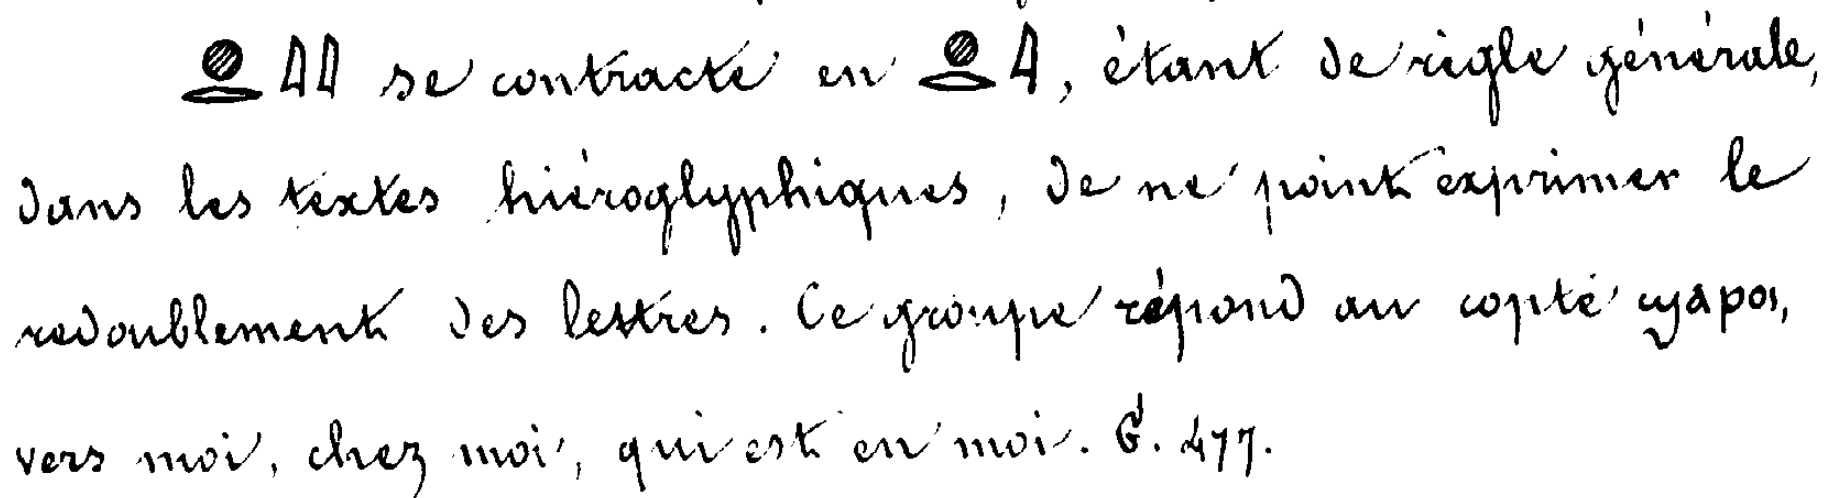 𓐍𓂋𓇋𓇋 se contracte en 𓐍𓂋𓇋, étant de règle générale,
dans les textes hiéroglyphiques, de ne point exprimer le
redoublement des lettres. Ce groupe répond au copte ϣⲁⲣⲟⲓ,
vers moi, chez moi, qui est en moi. G. 477.